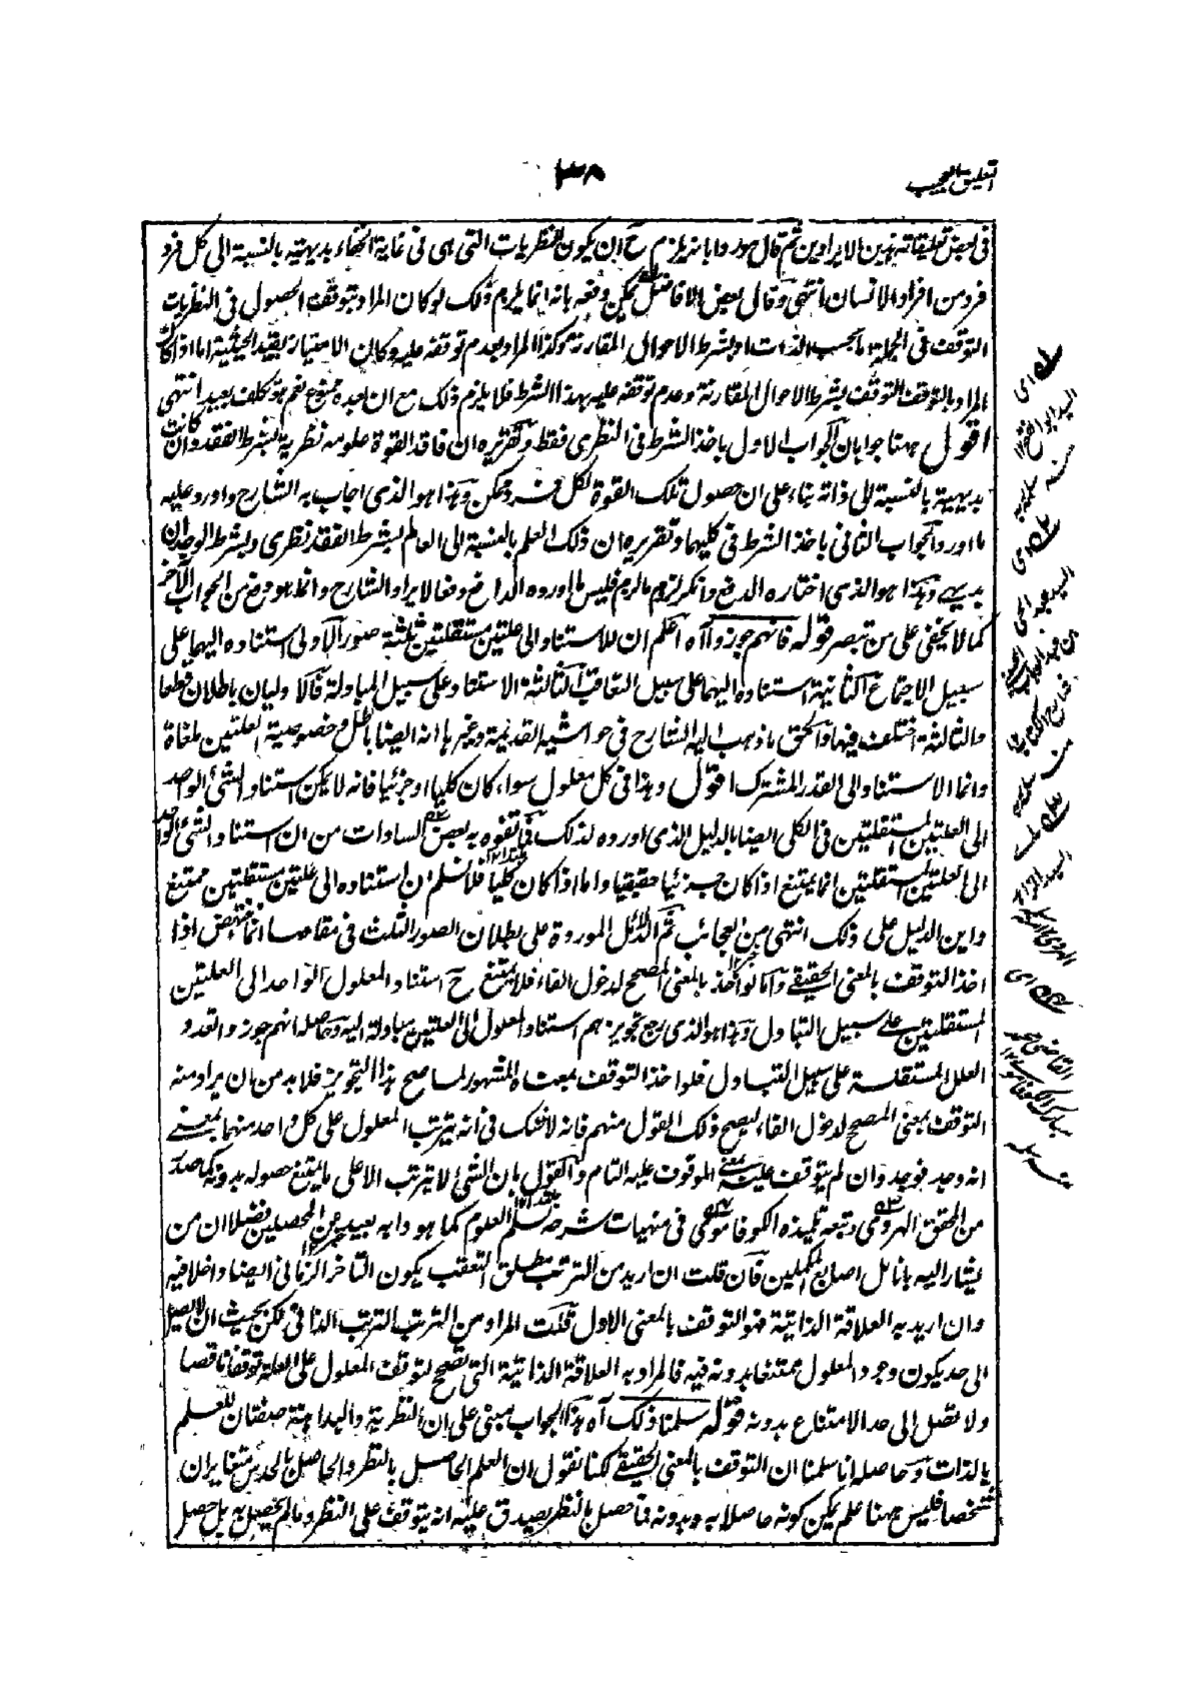 التعليق العجيب
٣٨
فى بعض تعليقاته بهذين الايرادين ثم قال هو روا بانه يلزم ح ان يكون النظريات التى هى فى غاية الخفاء بديهية بالنسبة الى كل فرد
فرد من افراد الانسان انتهى وقال بعض الافاضل يمكن دفعه بانه انما يلزم ذلك لو كان المراد بتوقف الحصول فى النظريات
التوقف فى الجملة اما بحسب الذات او بشرط الاحوال المقارنة وكذا المراد بعدم توقفه عليه وكان الامتياز بقيد الحيثية اما اذا كان
المراد بالتوقف التوقف بشرط الاحوال المقارنة وعدم توقفه عليه بهذا الشرط فلا يلزم ذلك مع ان بعده ممنوع نعم هو تكلف بعيد انتهى
اقول ههنا جوابان الجواب الاول باخذ الشرط فى النظرى فقط وتقريره ان فاقد القوة علومه نظرية بشرط الفقد وان كانت
بديهية بالنسبة الى ذاته بناء على ان حصول تلك القوة لكل فرد ممكن وهذا هو الذى اجاب به الشارح واورد عليه
ما اورد والجواب الثانى باخذ الشرط فى كليهما وتقريره ان ذلك العلم بالنسبة الى العالم بشرط الفقد نظرى وبشرط الوجدان
بديهى وهذا هو الذى اختاره الدافع وانكر لزوم ما لزم فليس ما اورده الدافع دفعا لايراد الشارح وانما هو فرع من الجواب الآخر
كما لا يخفى على من تبصر قوله فانهم جوزوا آه اعلم ان للاستناد الى علتين مستقلتين ثلثة صور الاولى استناده اليهما على
سبيل الاجتماع الثانية استناده اليهما على سبيل التعاقب الثالثة الاستناد على سبيل المبادلة فالاوليان باطلان قطعا
والثالثة اختلف فيها والحق ما ذهب اليه الشارح فى حواشيه القديمة وغيرها انه ايضا باطل وخصوصية العلتين ملغاة
وانما الاستناد الى القدر المشترك اقول وهذا فى كل معلول سواء كان كليا او جزئيا فانه لا يمكن استناد الشئ الواحد
الى العلتين المستقلتين فى الكلى ايضا بالدليل الذى اورده لذلك فما تفوه به بعض السادات من ان استناد الشئ الواحد
الى العلتين المستقلتين انما يمتنع اذا كان جزئيا حقيقيا واما اذا كان كليا فلا نسلم ان استناده الى علتين مستقلتين ممتنع
واين الدليل على ذلك انتهى من العجائب ثم الدلائل الموردة على بطلان الصور الثلث فى مقامها انما تنتهض اذا
اخذ التوقف بالمعنى الحقيقى واما لو اخذ بالمعنى المصحح لدخول الفاء فلا يمتنع ح استناد المعلول الواحد الى العلتين
المستقلتين على سبيل التبادل وهذا هو الذى رجح تجويزهم استناد المعلول الى العلتين مبادلة اليه وحاصله انهم جوزوا تعدد
العلل المستقلة على سبيل التبادل فلو اخذ التوقف بمعناه المشهور لما صح هذا التجويز فلا بد من ان يراد منه
التوقف بمعنى المصحح لدخول الفاء ليصح ذلك القول منهم فانه لا شك فى انه يترتب المعلول على كل واحد منهما بمعنى
انه وجد فوجد وان لم يتوقف عليه بمعنى الموقوف عليه التام والقول بان الشئ لا يترتب الا على ما يمتنع حصوله بدونه كما صدر
من المحقق الهروى وتبعه تلميذه الكوفاموى فى منهيات شرحه سلم العلوم كما هو دابه بعيد عن المحصلين فضلا ان من
يشار اليه بانامل اصابع المكملين فان قلت ان اريد من الترتب مطلق التعقب يكون التاخر الزمانى ايضا داخلا فيه
وان اريد به العلاقة الذاتية فهو التوقف بالمعنى الاول قلت المراد من الترتب الترتب الذاتى لكن بحيث ان لا يصل
الى حد يكون وجود المعلول ممتنعا بدونه فيه فالمراد به العلاقة الذاتية التى تصحح توقف المعلول على العلة توقفا ناقصا
ولا تصل الى حد الامتناع بدونه قوله سلمنا ذلك آه هذا الجواب مبنى على ان النظرية والبداهة صفتان للعلم
بالذات وحاصله انا سلمنا ان التوقف بالمعنى الحقيقى لكنا نقول ان العلم الحاصل بالنظر والحاصل بالحدس متغايران
شخصا فليس ههنا علم يمكن كونه حاصلا به وبدونه فما حصل بالنظر يصدق عليه انه يتوقف على النظر وما لم يحصل به بل حصل
اى
السيد ابو الفتح
منه سلمه
اى
السيد عبد
منه سلمه
السيد الزاهد
الهروى
اى
القاضى
مبارك الكوفاموى
منه سلمه